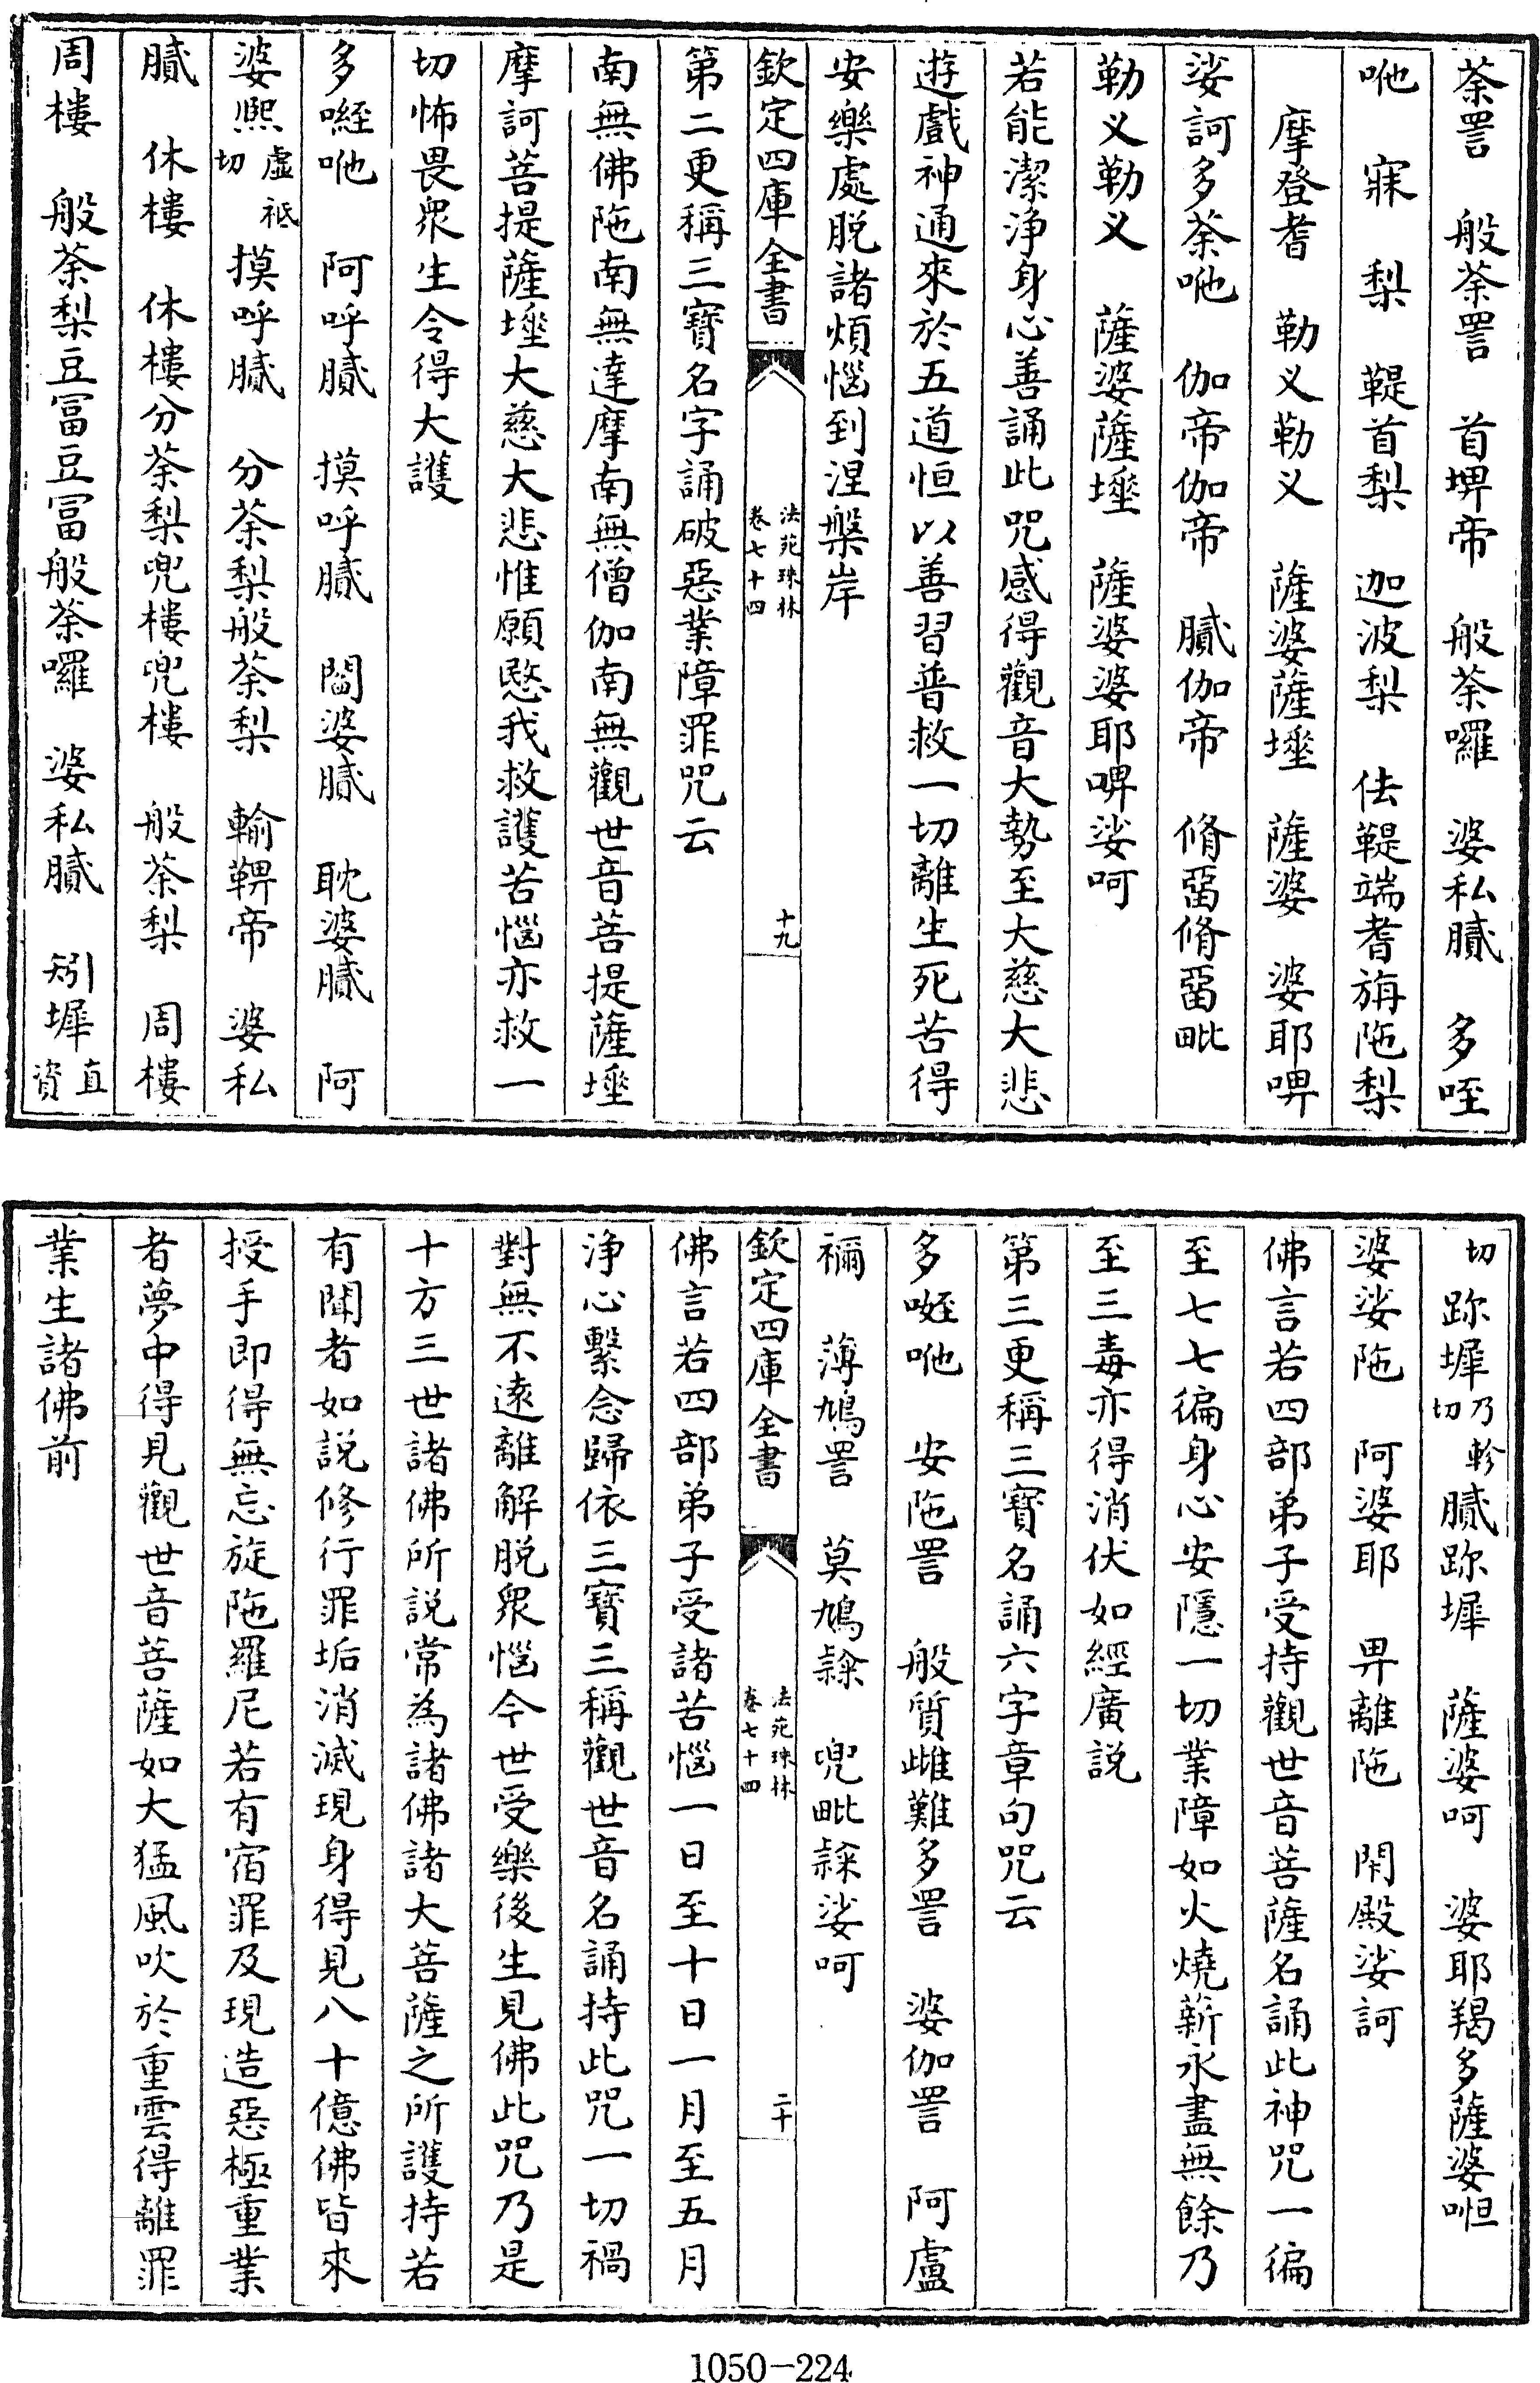 荼詈　般荼詈　首埤帝　般荼囉　婆私膩　多咥
咃　寐　梨　鞮首梨　迦波梨　佉鞮端耆旃陁梨
摩登耆　勒义勒义　薩婆薩埵　薩婆　婆耶啤
娑訶多荼咃　伽帝伽帝　膩伽帝　脩畱脩畱毗
勒义勒义　薩婆薩埵　薩婆婆耶啤娑呵
若能潔浄身心善誦此咒感得觀音大勢至大慈大悲
遊戲神通來於五道恒以善習普救一切離生死苦得
安樂處脱諸煩惱到涅槃岸
欽定四庫全書　法苑珠林卷七十四　十九
第二更稱三寶名字誦破惡業障罪咒云
南無佛陁南無達摩南無僧伽南無觀世音菩提薩埵
摩訶菩提薩埵大慈大悲惟願愍我救護苦惱亦救一
切怖畏衆生令得大護
多㗌咃　阿呼膩　摸呼膩　閻婆膩　耽婆膩　阿
婆熙虛祇切　摸呼膩　分荼梨般荼梨　輸鞞帝　婆私
膩　休樓　休樓分荼梨兜樓兜樓　般荼梨　周樓
周樓　般荼梨豆富豆富般荼囉　婆私膩　矧墀直資
切　跡墀乃軫切膩跡墀　薩婆呵　婆耶羯多薩婆呾
婆娑陁　阿婆耶　畀離陁　閇殿娑訶
佛言若四部弟子受持觀世音菩薩名誦此神咒一徧
至七七徧身心安隱一切業障如火燒薪永盡無餘乃
至三毒亦得消伏如經廣説
第三更稱三寶名誦六字章句咒云
多㗌咃　安陁詈　般質雌難多詈　婆伽詈　阿盧
禰　薄鳩詈　莫鳩隸　兜毗隸娑呵
欽定四庫全書　法苑珠林卷七十四　二十
佛言若四部弟子受諸苦惱一日至十日一月至五月
浄心繫念歸依三寶三稱觀世音名誦持此咒一切禍
對無不逺離解脱衆惱今世受樂後生見佛此咒乃是
十方三世諸佛所説常為諸佛諸大菩薩之所護持若
有聞者如説修行罪垢消滅現身得見八十億佛皆來
授手即得無忘旋陁羅尼若有宿罪及現造惡極重業
者夢中得見觀世音菩薩如大猛風吹於重雲得離罪
業生諸佛前
1050-224